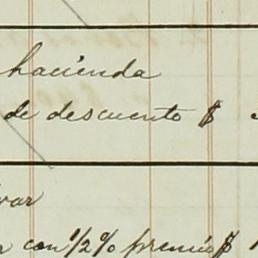 hacienda
de descuento $
var
con 1/2 % premio $